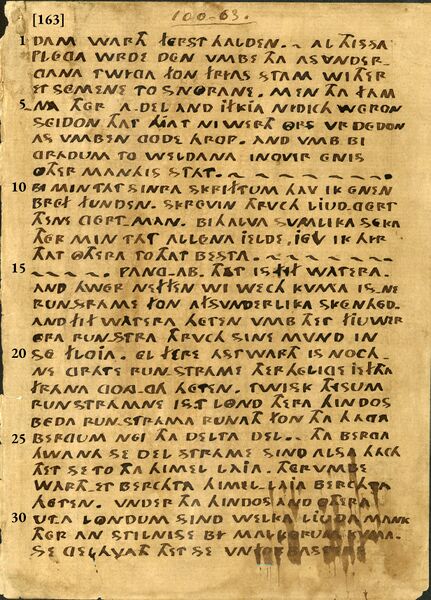 100-63.
[163]
1 DAM WARTH FERST HALDEN. AL THISSA
PLEGA WRDE DEN VMBE THA ASVNDER-
GANA TWYIA FON FRYAS STAM WITHER
ET SEMENE TO SNORANE. MEN THA FAM-
5 NA THER A-DEL AND ILIKIA NEDICH WERON
SEIDON THAT HIAT NI WERK ORS VR DEDON
AS VMBEN GODE HROP. AND VMB BI
GRADUM TO WELDANA INOVIR ENIS
OTHER MANNIS STAT.
10 BI MIN TAT SINRA SKRIFTUM HAV IK ENEN
BREF FUNDEN. SKREVIN THRVCH LIUD-GERT
THENE GERT-MAN. BIHALVA SVMLIKA SEKA
THER MIN TAT ALLENA IELDE, IEV IK HIR
THAT OTHERA TO THAT BESTA.
15 PANG-AB. THET IS FIF WATERA.
AND HWER NEFFEN WI WECH KVMA IS-NE
RUNSTRAME FON AFSVNDERLIKA SKENHED.
AND FIF WATERA HETEN VMB THET FIUWER
ORA RUNSTRA THRVCH SINE MUND IN
20 SE FLOIA. EL FERE ASTWARTH IS NOCH-
NE GRATE RUNSTRAME THER HELIGE IS FTHA
FRANA GONG-GA HETEN. TWISK THISUM
RUNSTRAMNE IS.T LOND THERA HINDOS
BEDA RUNSTRAMA RUNATH FON THA HAGA
25 BERGUM NEI THA DELTA DEL. THA BERGA
HWANA SE DEL STRAME SIND ALSA HACH
THET SE TO THA HIMEL LAIA. THERUMBE
WARTH-ET BERCHTA HIMEL-LAIA BERCHTA
HETEN. VNDER THA HINDOS AND OTHERA
30 UTA LONDUM SIND WELKA LIUDA MANK
THER AN STILNISE BI MALKORUM KVMA.
SE GELAVATH THET SE